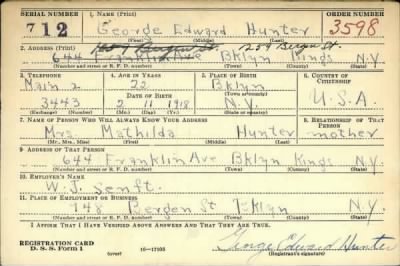 SERIAL NUMBER 1. NAME (Print) ORDER NUMBER
712 George Edward Hunter 3598
(First) (Middle) (Last)
2. ADDRESS (Print) 209 Bergen St.
644 Ave Bklyn Kings N.Y.
(Number and street or R. F. D. number) (Town) (County) (State)
3. TELEPHONE 4. AGE IN YEARS 5. PLACE OF BIRTH 6. COUNTRY OF CITIZENSHIP
Main 2 22 Bklyn
DATE OF BIRTH (Town or county)
3443 2 11 1918 N.Y. U.S.A
(Exchange) (Number) (Mo.) (Day) (Yr.) (State or country)
7. NAME OF PERSON WHO WILL ALWAYS KNOW YOUR ADDRESS 8. RELATIONSHIP OF THAT PERSON
Mrs. Mathilda Hunter mother
(Mr., Mrs., Miss) (First) (Middle) (Last)
9. ADDRESS OF THAT PERSON
644 Franklin Ave Bklyn Kings N.Y.
(Number and street or R. F. D. number) (Town) (County) (State)
10. EMPLOYER'S NAME
W. J. Senft.
11. PLACE OF EMPLOYMENT OR BUSINESS
748 Bergen St Bklyn N.Y.
(Number and street or R. F. D. number) (Town) (County) (State)
I AFFIRM THAT I HAVE VERIFIED ABOVE ANSWERS AND THAT THEY ARE TRUE.
REGISTRATION CARD
D. S. S. Form 1 16—17105 George Edward Hunter
(over) (Registrant's signature)